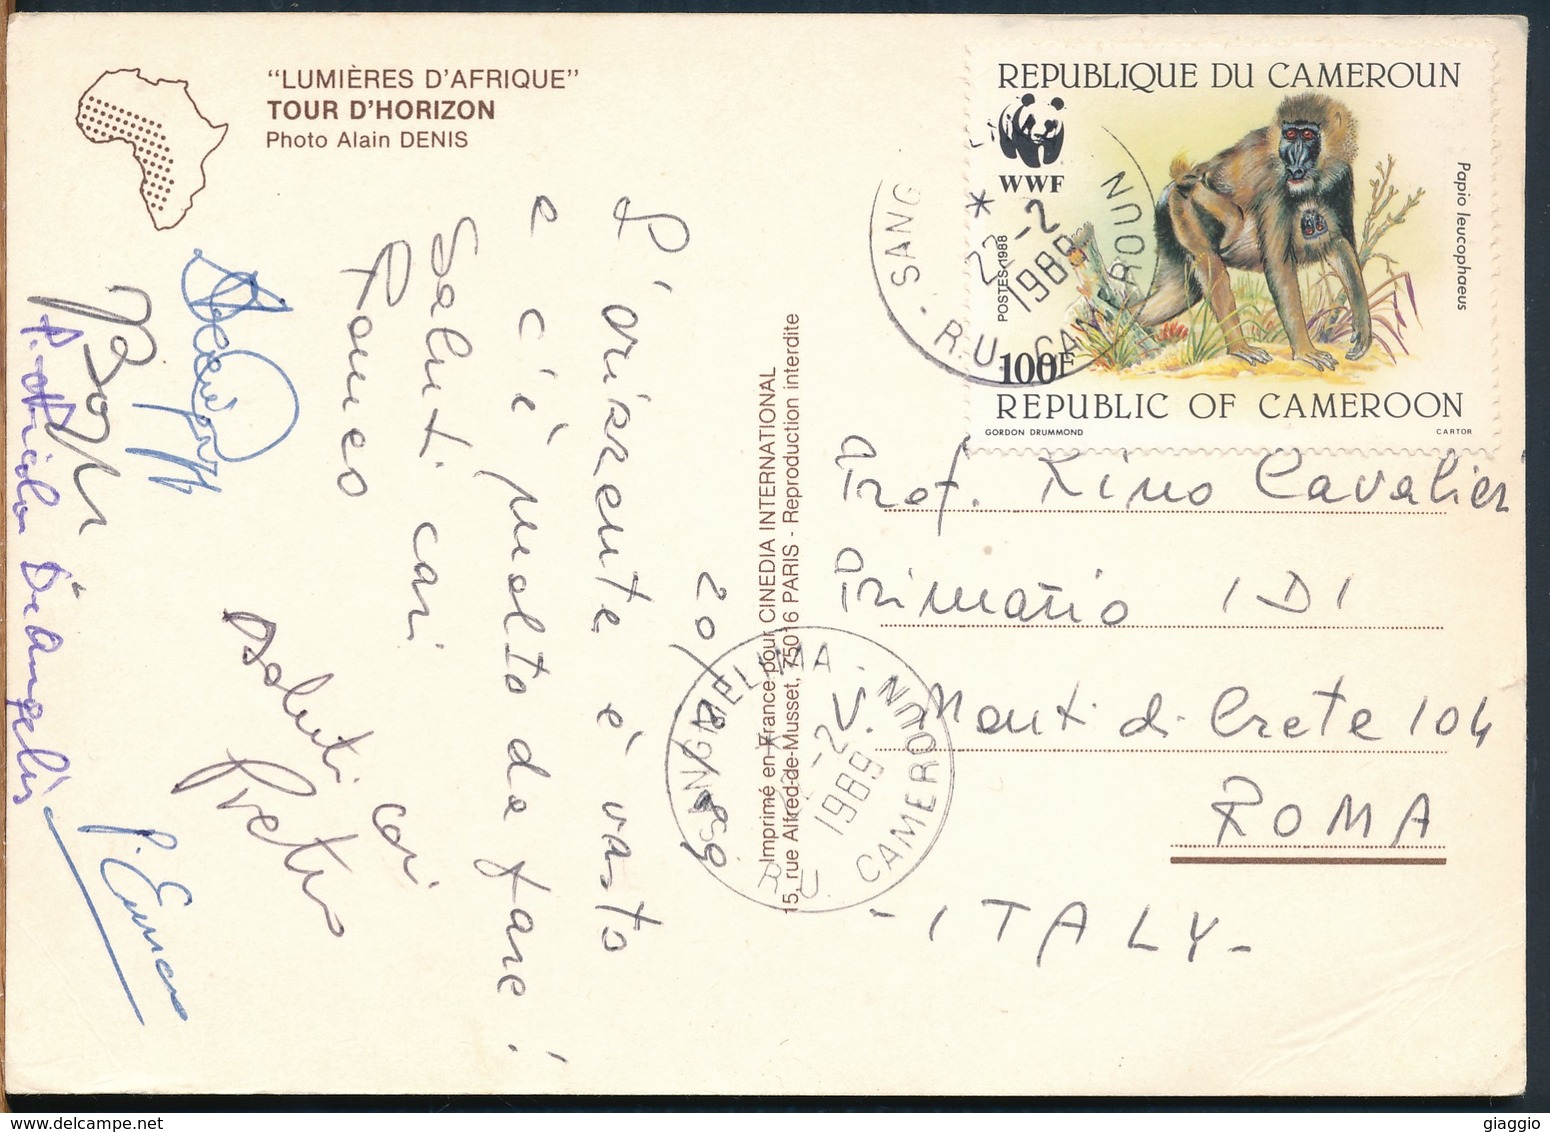 "LUMIÈRES D'AFRIQUE"
TOUR D'HORIZON
Photo Alain DENIS
20/2/89
L'orizzonte è vasto
e c'è molto da fare!
Saluti cari
Romeo
Saluti cari
P. Nicola De Angelis
Imprimé en France pour CINEDIA INTERNATIONAL
15, rue Alfred-de-Musset, 75016 PARIS - Reproduction interdite
REPUBLIQUE DU CAMEROUN
WWF
Papio leucophaeus
POSTES 1988
100F
REPUBLIC OF CAMEROON
GORDON DRUMMOND
CARTOR
SANG
22-2
1989
R.U. CAMEROUN
SANGMELIMA - R.U. CAMEROUN
22-2
1989
Prof. Kino Cavalieri
Primario IDI
V. Monti di Creta 104
ROMA
- ITALY -
giaggio